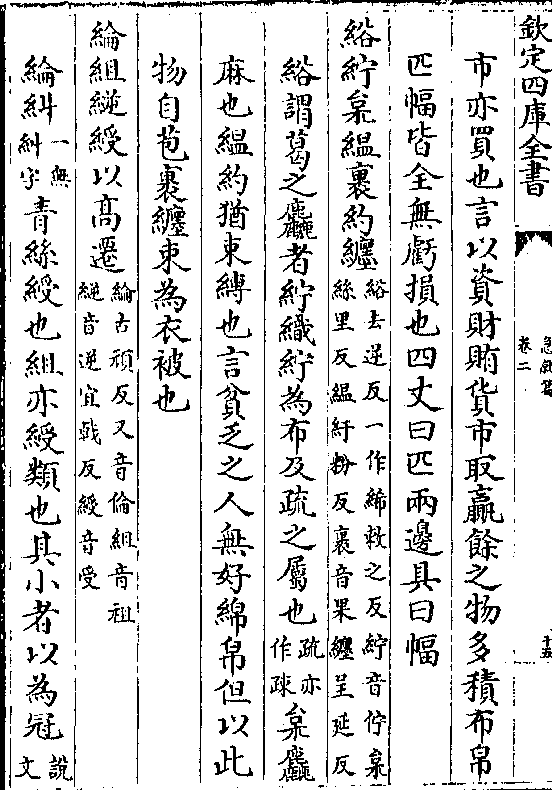 欽定四庫全書
急就篇
卷二
十五
市亦買也言以資財賄貨市取贏餘之物多積布帛
匹幅皆全無虧損也四丈曰匹兩邊具曰幅
綌紵枲縕裹約纏綌去逆反一作絺敕之反紵音佇枲
絲里反縕紆粉反裹音果纏呈延反
綌謂葛之麤者紵織紵為布及疏之屬也疏亦
作疎枲麤
麻也縕約猶束縛也言貧乏之人無好綿帛但以此
物自苞裹纏束為衣被也
綸組縌綬以高遷綸古頑反又音倫組音祖
縌音逆宜戟反綬音受
綸糾一無
糾字青絲綬也組亦綬類也其小者以為冠說
文